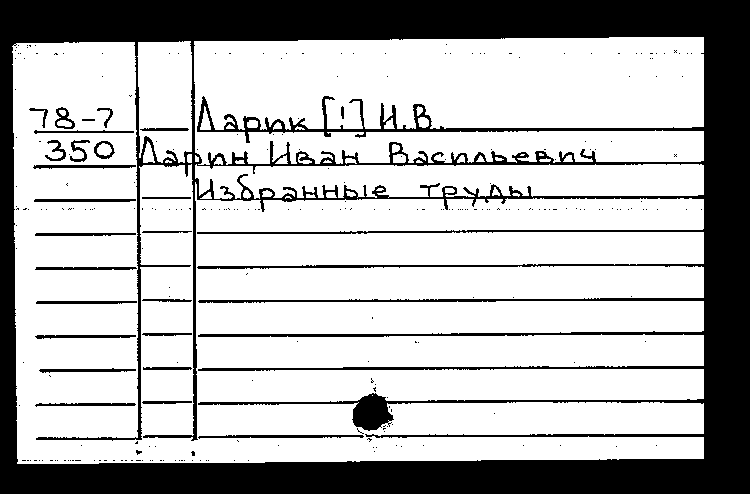 78-7 Ларик [!] И.В.
350 Ларин, Иван Васильевич
Избранные труды